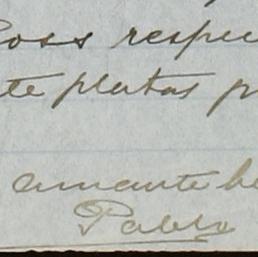 Ross respec
te platas p
amante he
Pablo